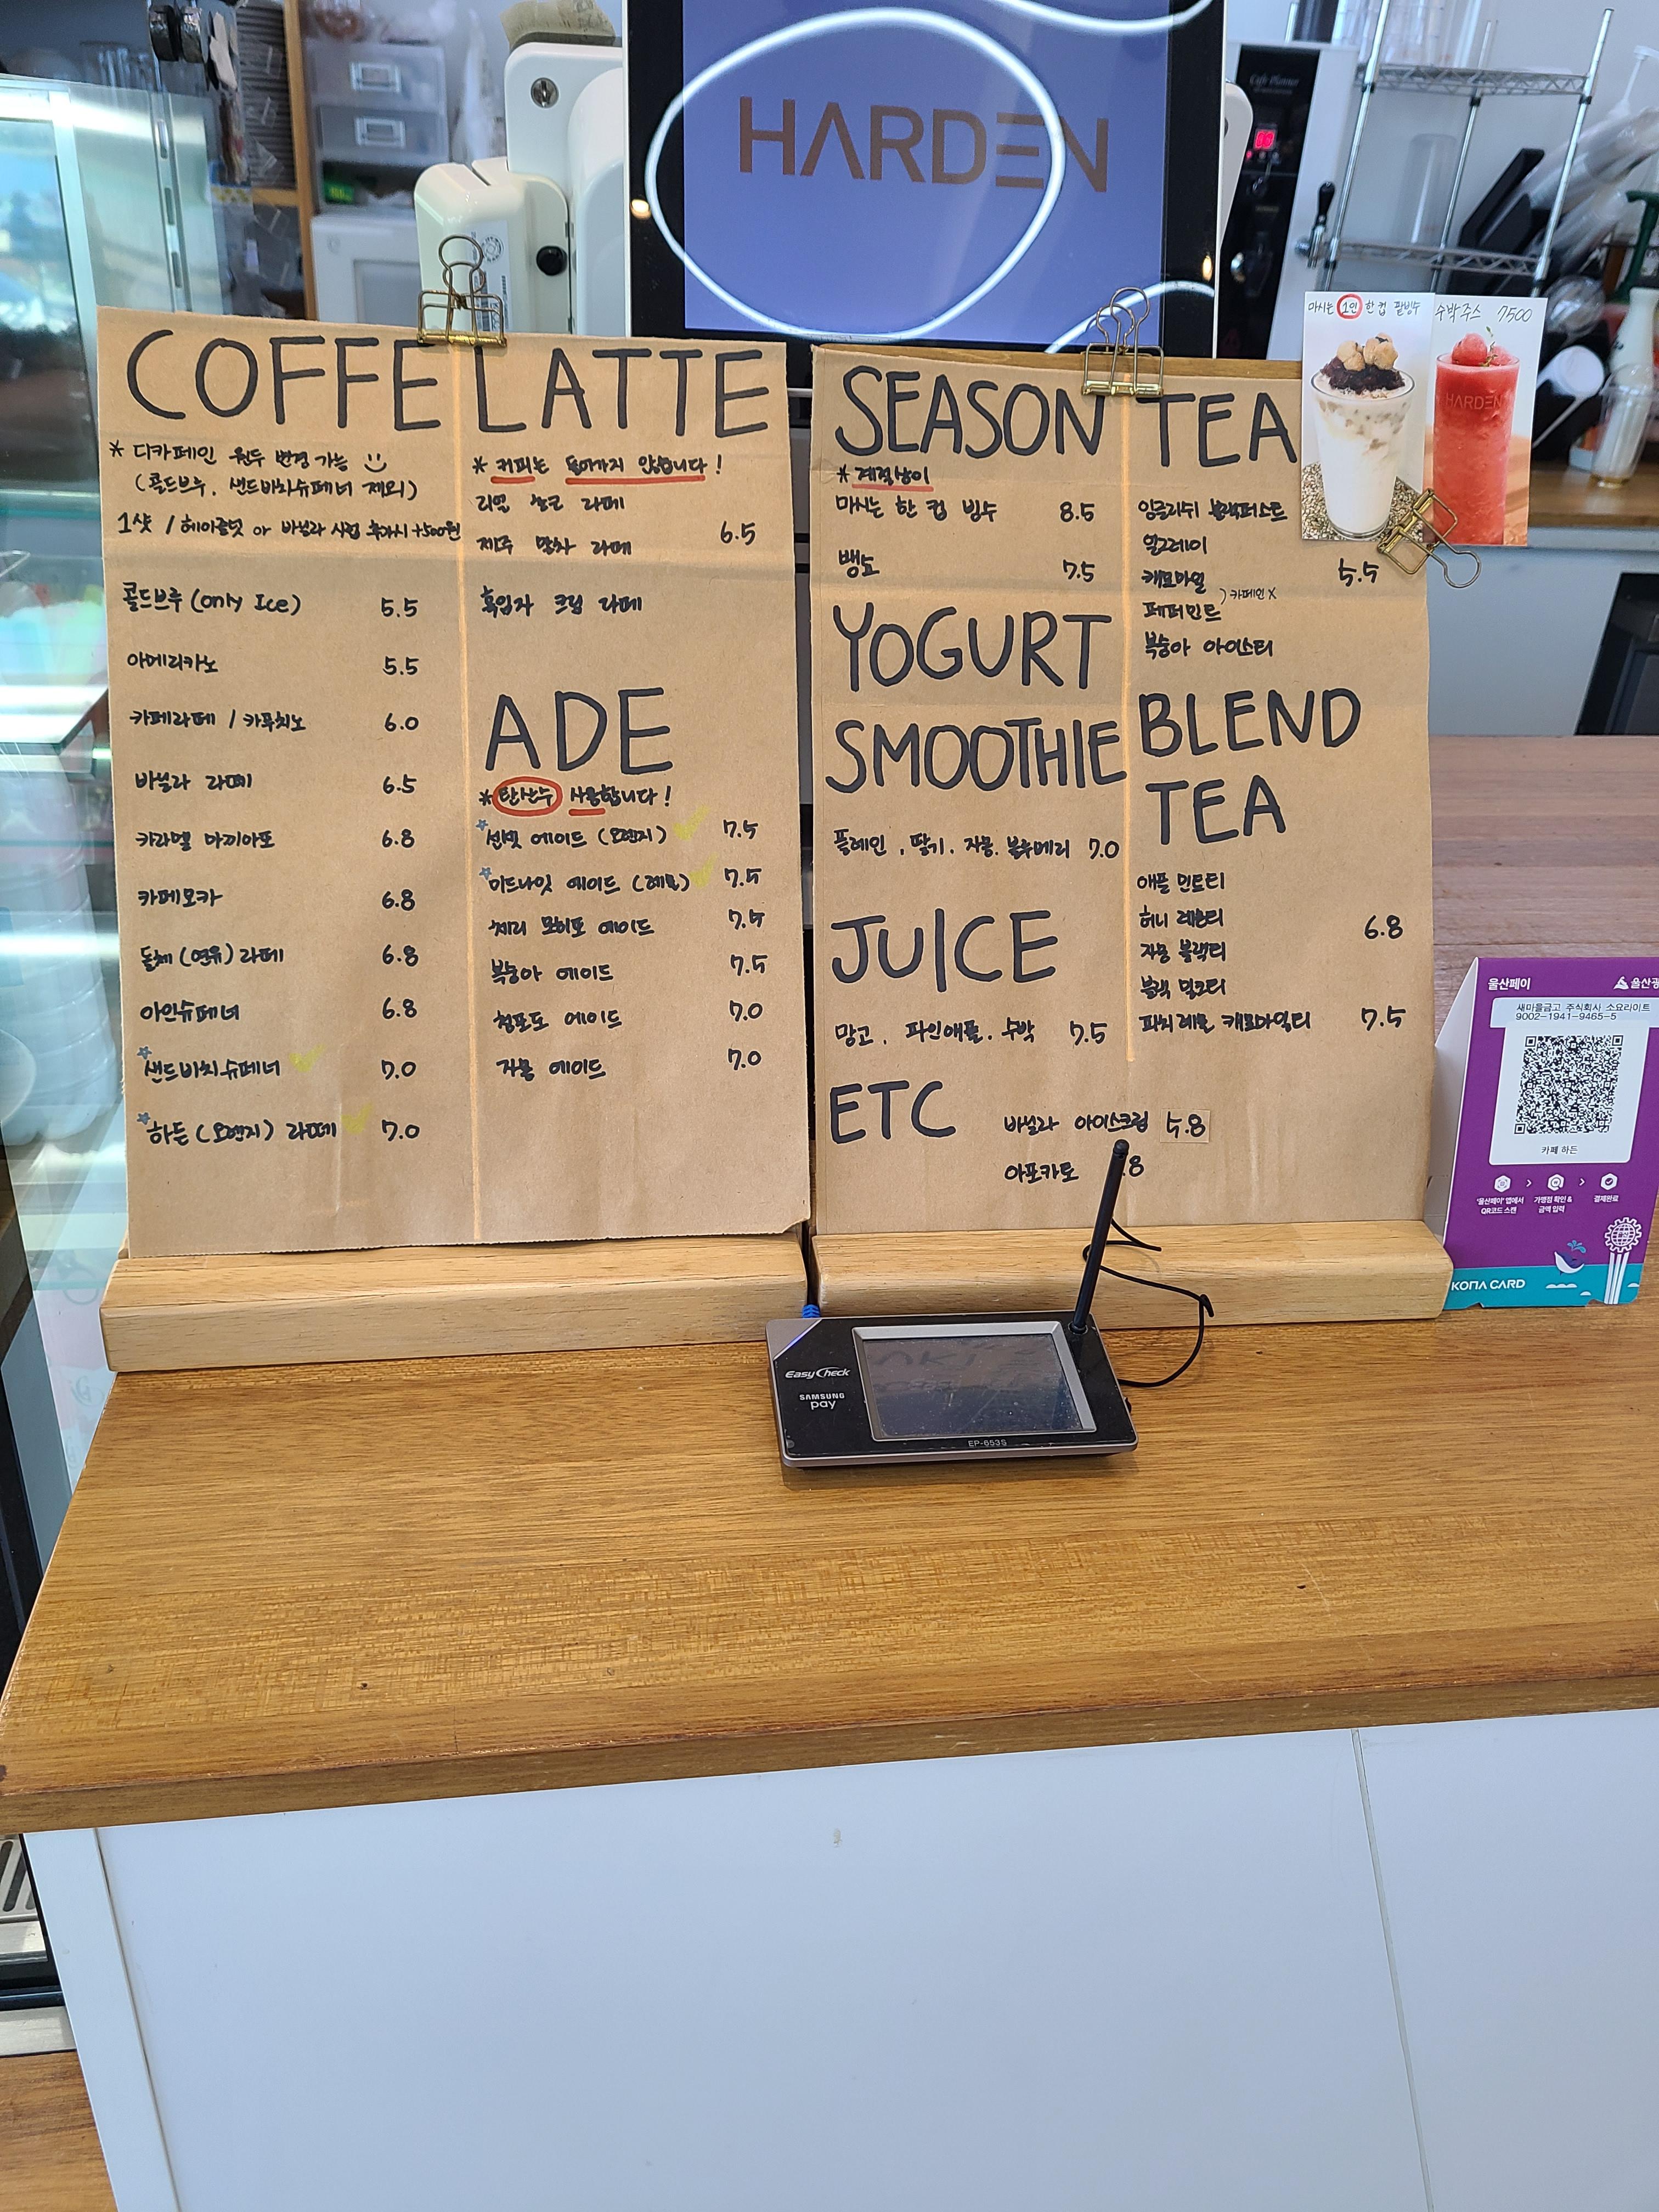 HARDEN
COFFE
* 디카페인 원두 변경 가능
(콜드브루, 샌드비치슈페너 제외)
1샷 / 헤이즐넛 or 바닐라 시럽 추가시 +500원
콜드브루 (only Ice) 5.5
아메리카노 5.5
카페라떼 / 카푸치노 6.0
바닐라 라떼 6.5
카라멜 마끼아또 6.8
카페모카 6.8
돌체 (연유) 라떼 6.8
아인슈페너 6.8
샌드비치슈페너 7.0
하든 (오렌지) 라떼 7.0
LATTE
* 커피는 들어가지 않습니다!
리얼 초코 라떼
제주 말차 라떼 6.5
흑임자 크림 라떼
ADE
* 탄산수 사용합니다!
선셋 에이드 (오렌지) 7.5
미드나잇 에이드 (레몬) 7.5
체리 모히또 에이드 7.5
복숭아 에이드 7.5
청포도 에이드 7.0
자몽 에이드 7.0
SEASON
* 계절상이
마시는 한 컵 빙수 8.5
뱅쇼 7.5
YOGURT
SMOOTHIE
플레인, 딸기, 자몽, 블루베리 7.0
JUICE
망고, 파인애플, 수박 7.5
ETC
바닐라 아이스크림 5.8
아포카토 .8
TEA
잉글리쉬 블랙퍼스트
얼그레이
캐모마일 5.5
페퍼민트
) 카페인 X
복숭아 아이스티
BLEND
TEA
애플 민트티
허니 레몬티
자몽 블랙티 6.8
블랙 밀크티
피치레몬 캐모마일티 7.5
마시는 1인 한 컵 팥빙수
수박주스 7500
HARDEN
울산페이
새마을금고 주식회사 소요라이트
9002-1941-9465-5
카페 하든
'울산페이' 앱에서
QR코드 스캔
가맹점 확인 &
금액 입력
결제완료
KONA CARD
EasyCheck
SAMSUNG
pay
EP-653S